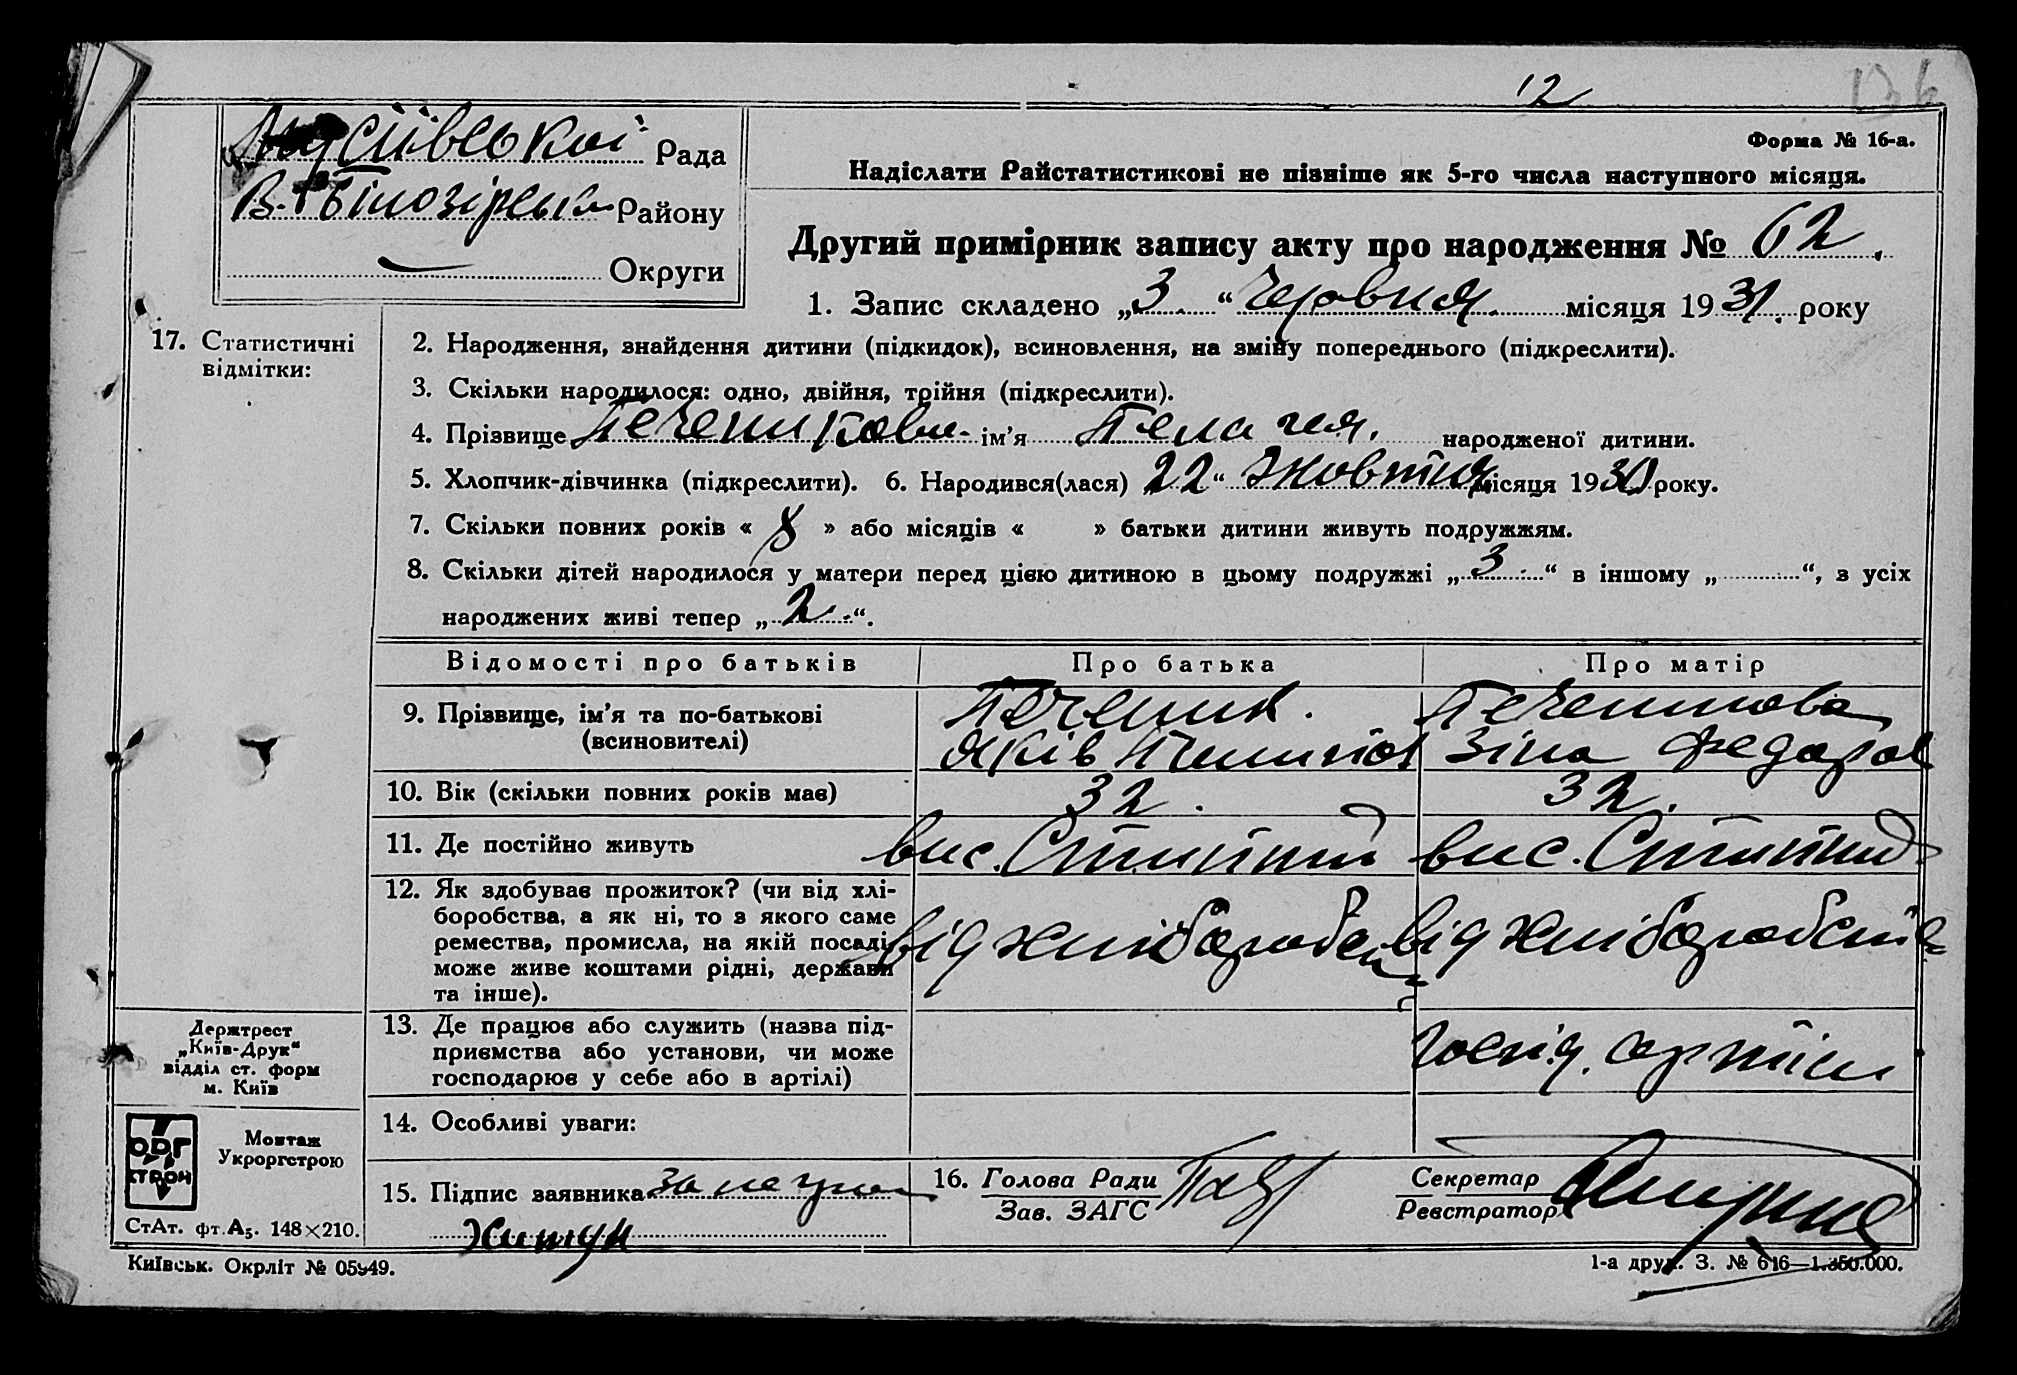 12
136
Рада
В. Білозірська Району
Округи
Форма № 16-а.
Надіслати Райстатистикові не пізніше як 5-го числа наступного місяця.
Другий примірник запису акту про народження № 62.
1. Запис складено „3“ Червня місяця 1931. року
17. Статистичні
відмітки:
2. Народження, знайдення дитини (підкидок), всиновлення, на зміну попереднього (підкреслити).
3. Скільки народилося: одно, двійня, трійня (підкреслити).
4. Прізвище ім’я Пелагия. народженої дитини.
5. Хлопчик-дівчинка (підкреслити). 6. Народився(лася) 22“ жовтня місяця 1930 року.
7. Скільки повних років « 8 » або місяців « » батьки дитини живуть подружжям.
8. Скільки дітей народилося у матери перед цією дитиною в цьому подружжі „3“ в іншому „ “, з усіх
народжених живі тепер „2“.
Відомості про батьків Про батька Про матір
9. Прізвище, ім’я та по-батькові
(всиновителі)
Яків Зіна Федоров
10. Вік (скільки повних років має) 32. 32.
11. Де постійно живуть вис. вис.
12. Як здобуває прожиток? (чи від хлі-
боробства, а як ні, то з якого саме
ремества, промисла, на якій посаді,
може живе коштами рідні, держави
та інше).
від хліборобст від хліборобств
13. Де працює або служить (назва під-
приємства або установи, чи може
господарює у себе або в артілі)
госпд. артіли
14. Особливі уваги:
15. Підпис заявника за негра
16. Голова Ради
Зав. ЗАГС
Секретар
Реєстратор
Держтрест
„Київ-Друк“
відділ ст. форм
м. Київ
ОРГ
СТРОЙ
Монтаж
Укроргстрою
СтАт. фт. А₅. 148×210.
Київськ. Окрліт № 05949.
1-а друк. З. № 616—1.350.000.